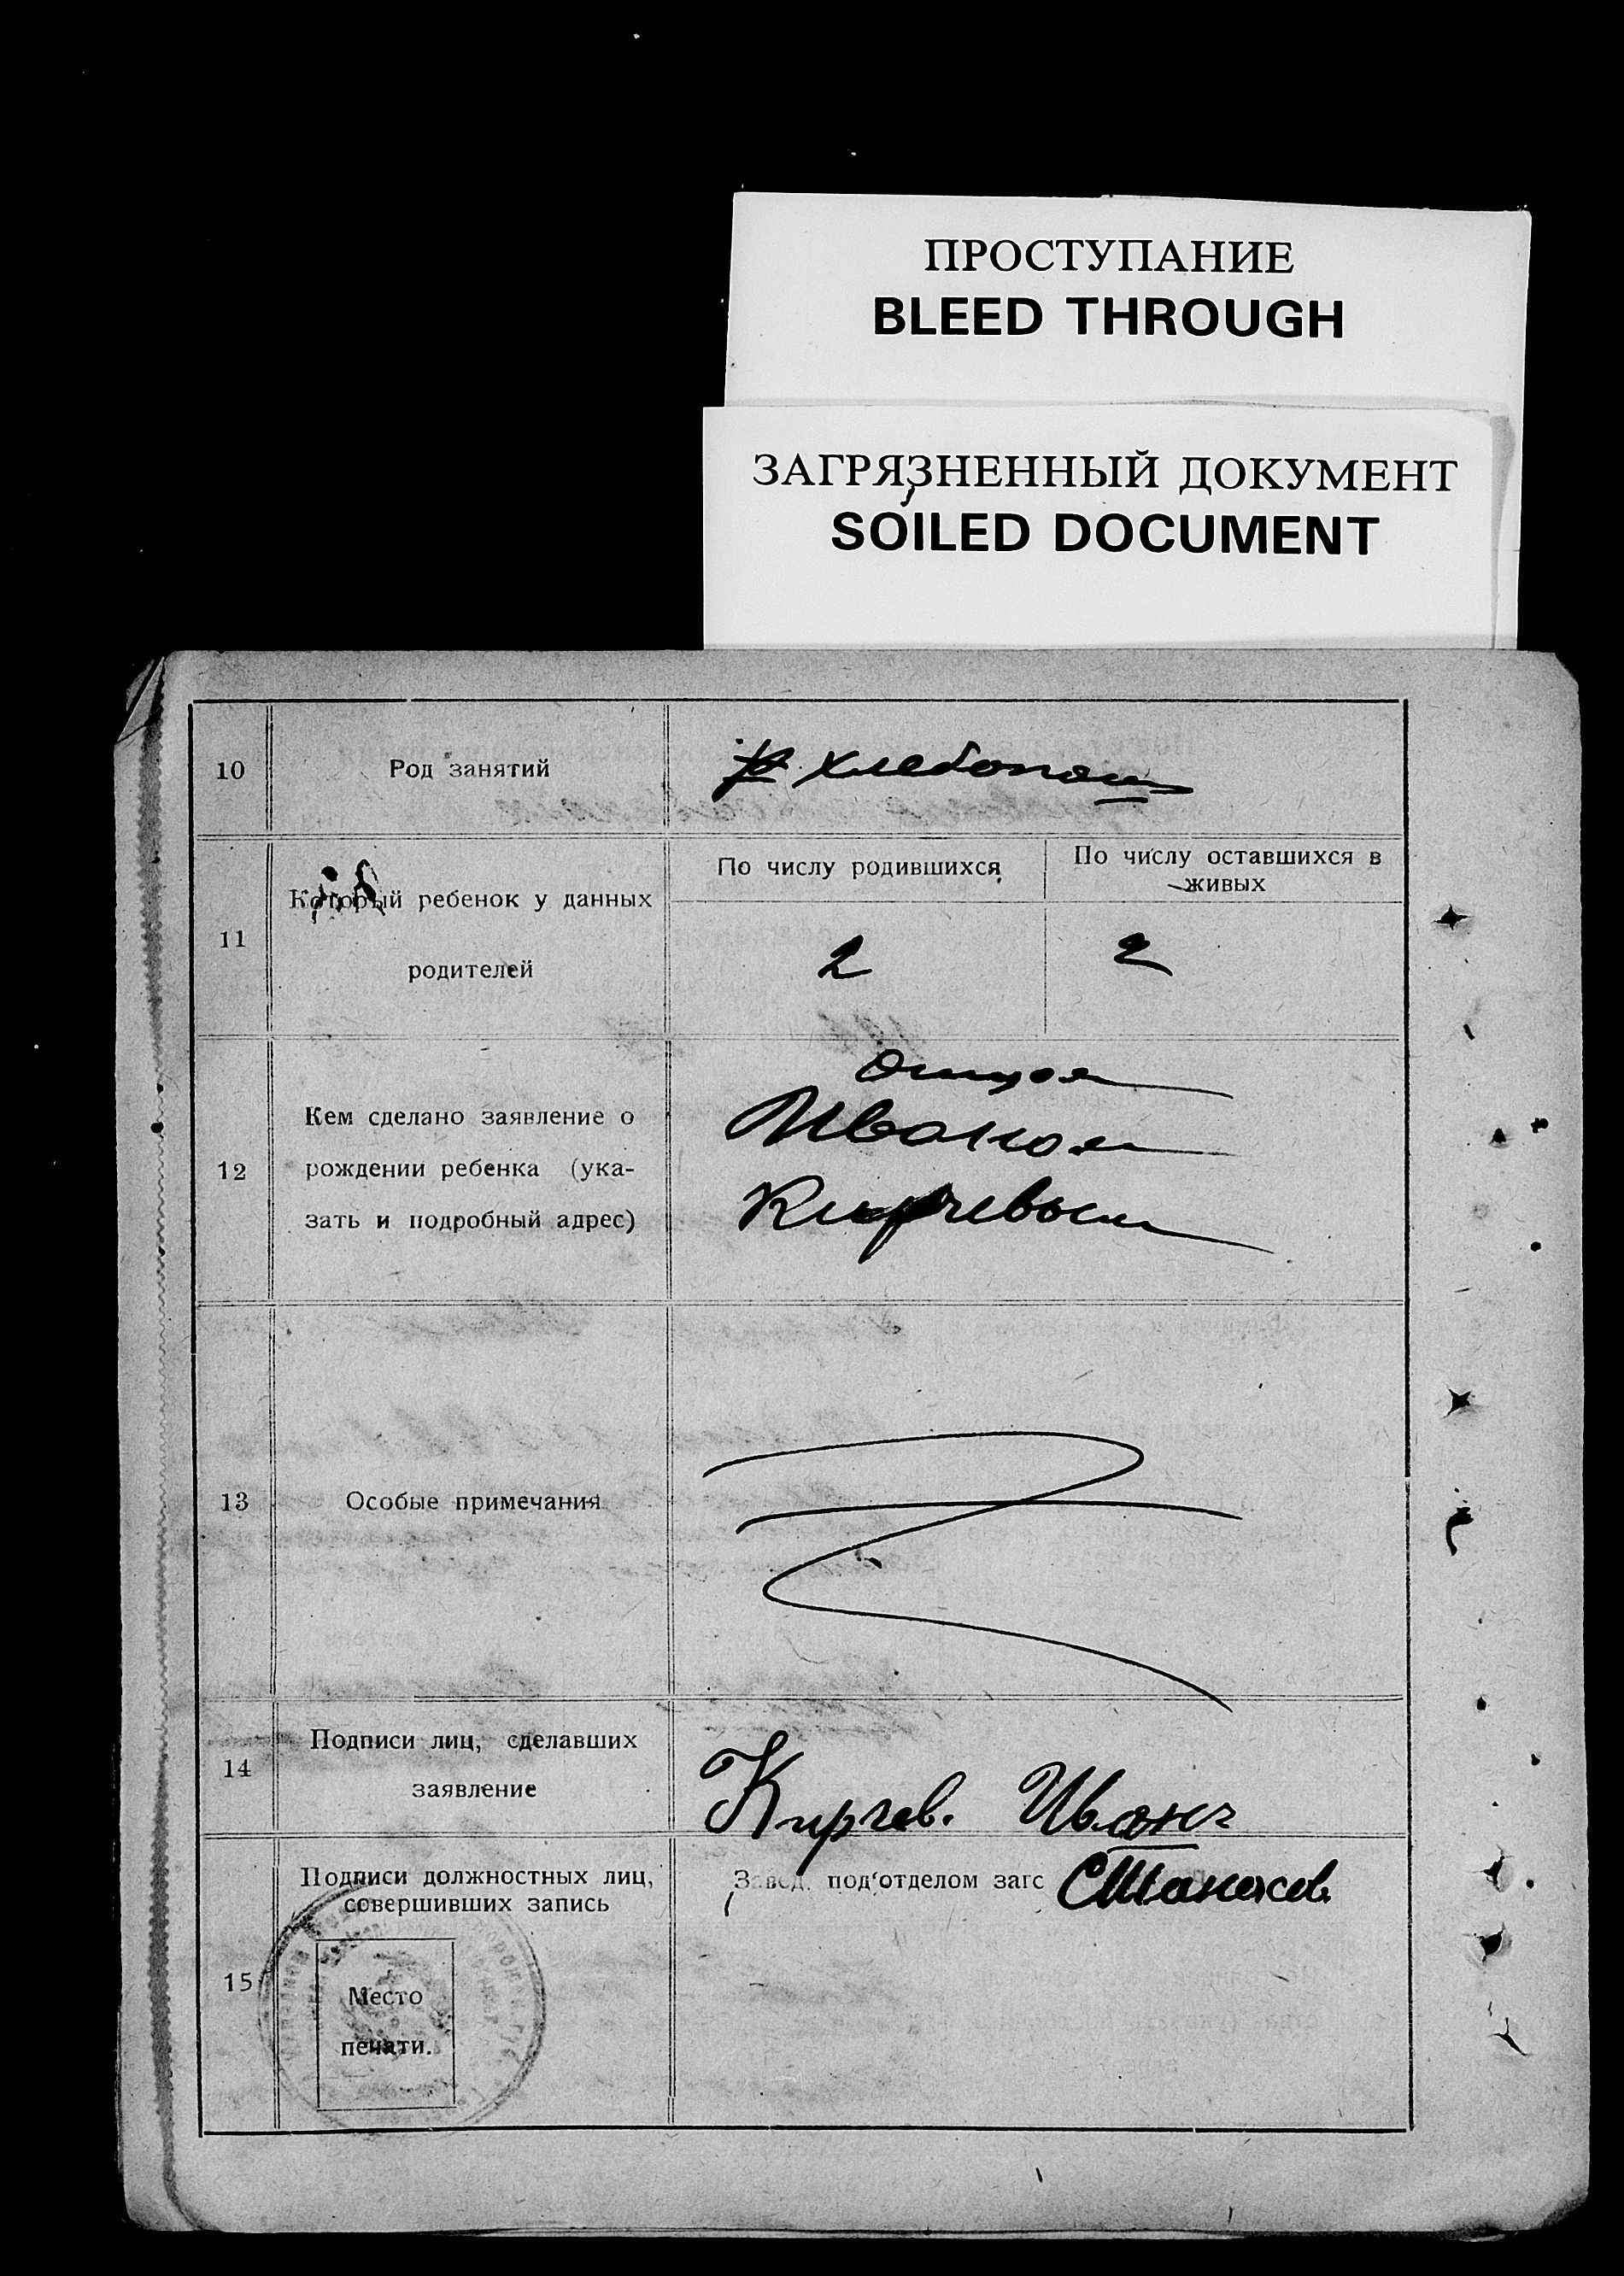 ПРОСТУПАНИЕ
BLEED THROUGH
ЗАГРЯЗНЕННЫЙ ДОКУМЕНТ
SOILED DOCUMENT
10 Род занятий хлебопаш
11 Который ребенок у данных родителей
По числу родившихся
По числу оставшихся в живых
2 2
12 Кем сделано заявление о
рождении ребенка (ука-
зать и подробный адрес)
Отцом
Иваном
Кирчевым
13 Особые примечания
14 Подписи лиц, сделавших
заявление
Кирчев. Иванъ
15 Подписи должностных лиц,
совершивших запись
Завед. под'отделом загс
Место
печати.